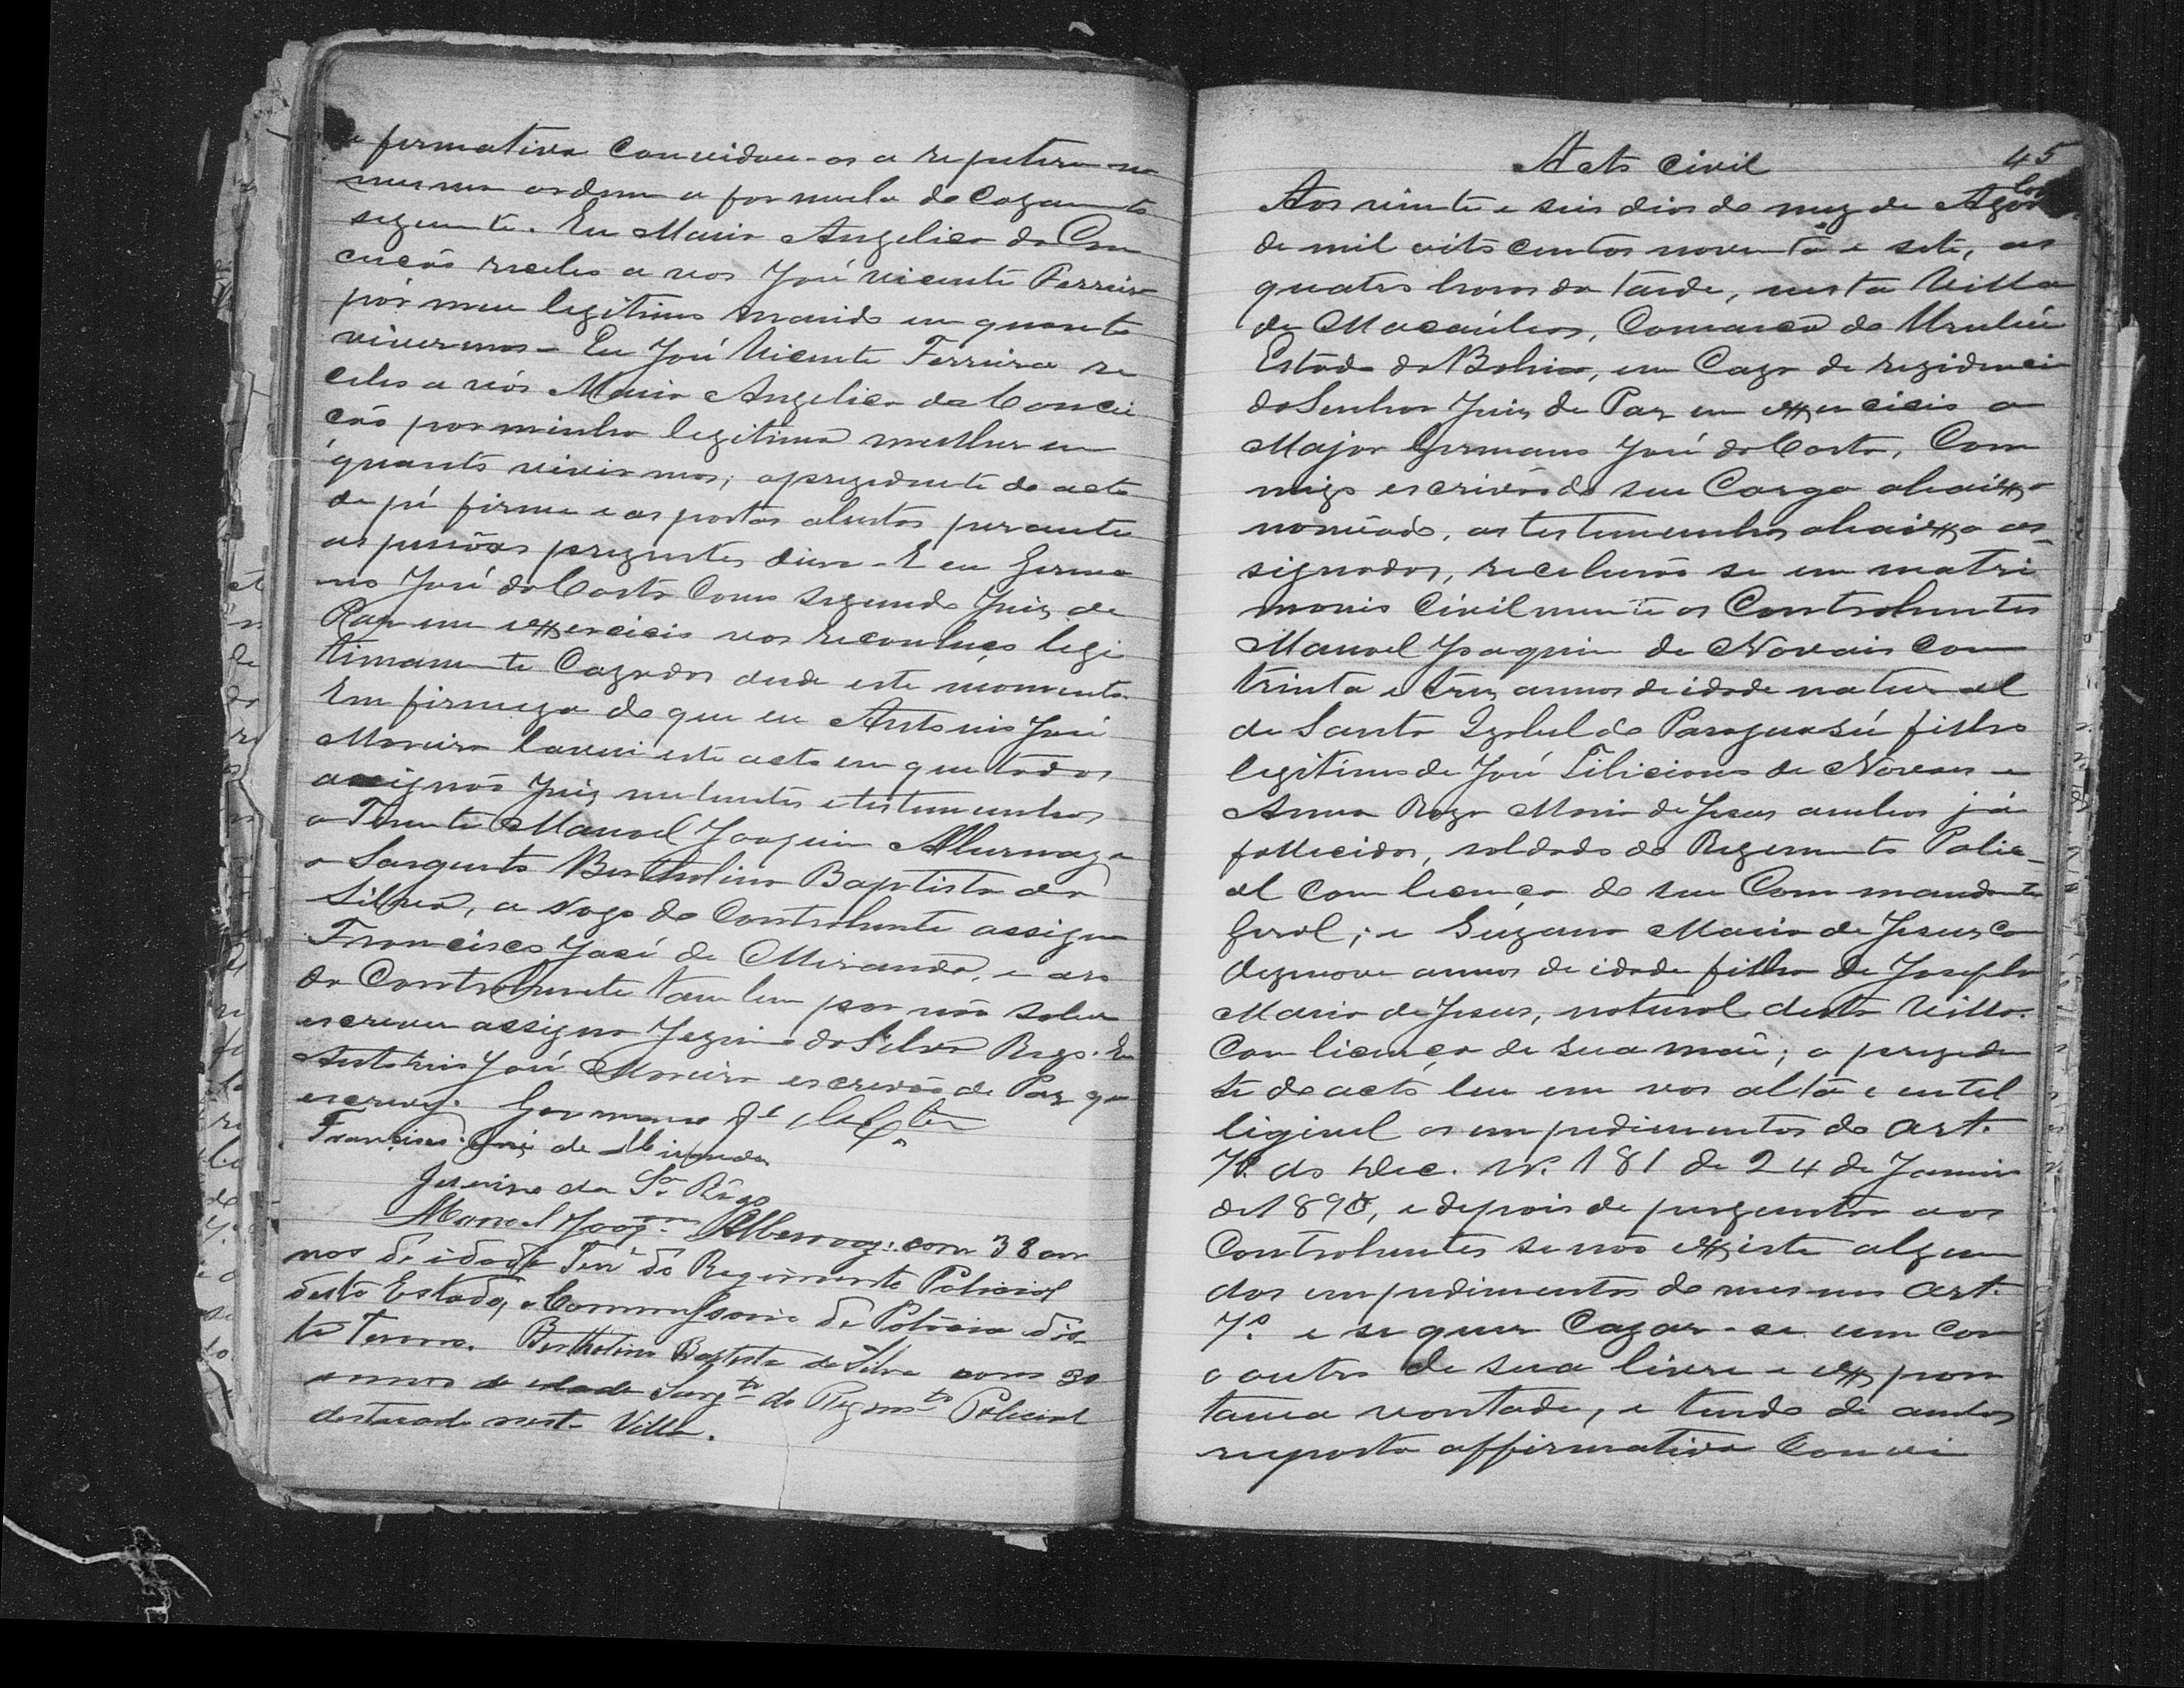 firmativa convidou-os a repetirem na
mesma ordem a formula do cazamento
seguinte. Eu Maria Angelica da Con
ceicão recebo a vos José Vicente Ferreira
pór meu legitimo marido em quanto
vivermos - Eu José Vicente Ferreira re
cebo a vós Maria Angelica da Concei
cão por minha legitima mulher em
quanto vivirmos; aprezidente do acto
de pé firme e as portas abertas perante
as pessôas prezentes disse - E eu Germa
no José da Costa Como segundo Juiz de
Paz em exxercicio vos reconheço legi
timamente Cazados desde este momento.
Em firmeza do que eu Antonio José
Moreira lavrei este acto em que todos
assignão Juiz nubentes e testemunhas
o Tenente Manoel Joaquim Albernaz e
o Sargento Bertholino Baptista da
Silva, a rogo do Contrahente assigna
Francisco José de Miranda, e a ro
da Contrahente tambem por não saber
escrever assigna Jezuino da Silva Rego. Eu
Antonio José Moreira escrivão de Paz que
escrevy. Germano Jé da Costa
Francisco José de Miranda
Jesuino da Sa Rêgo
Manoel Joaqm Albernaz: com 38 an
nos de idade Ten do Regimento Policial
desto Estado, e Commissario de Policia dês
te Termo. Bertholino Baptista da Silva com 30
annos de idade Sargto do Regimto Policial
destacado nesta Villa.
Acto Civil
45
Aos vinte e seis dias do mez de Agos
de mil oito centos noventa e sete, as
quatro horas da tarde, nesta Villa
de Macaúbas, Comarca do Urubú
Estado da Bahia, em Caza de rezidenci
do Senhor Juiz de Paz em exxercicio o
Major Germano José da Costa, Com
migo escrivão do seu Cargo abaixxo
nomeado, as testemunhas abaixxo as
signados, receberão se em matri
monio Civilmente os Contrahentes
Manoel Joaquim de Novais com
trinta e trez annos de idade natural
de Santa Izabel do Paraguasú filho
legitimo de José Filiciano de Novaes e
Anna Roza Maria de Jesus ambos já
fallecidos, soldado do Regimento Polici
al com licença do seu Commandante
Geral; e Suzana Maria de Jesus co
dezenove annos de idade filha de Josepha
Maria de Jesus, natural desta Villa.
Com licença de sua mãi; o prezeden
te do acto leu em vos alta e entel
ligivel os empedimentos do art.
7º. do Dec. Nº. 181 de 24 de Janeiro
de 1890, e depois de perguntar aos
Contrahentes se não exxiste algum
dos empedimentos do mesmo art.
7º. e se quer Cazar-se um com
o outro de sua livre e exxpon
tanea vontade, e tendo de ambos
resposta affirmativa Convi